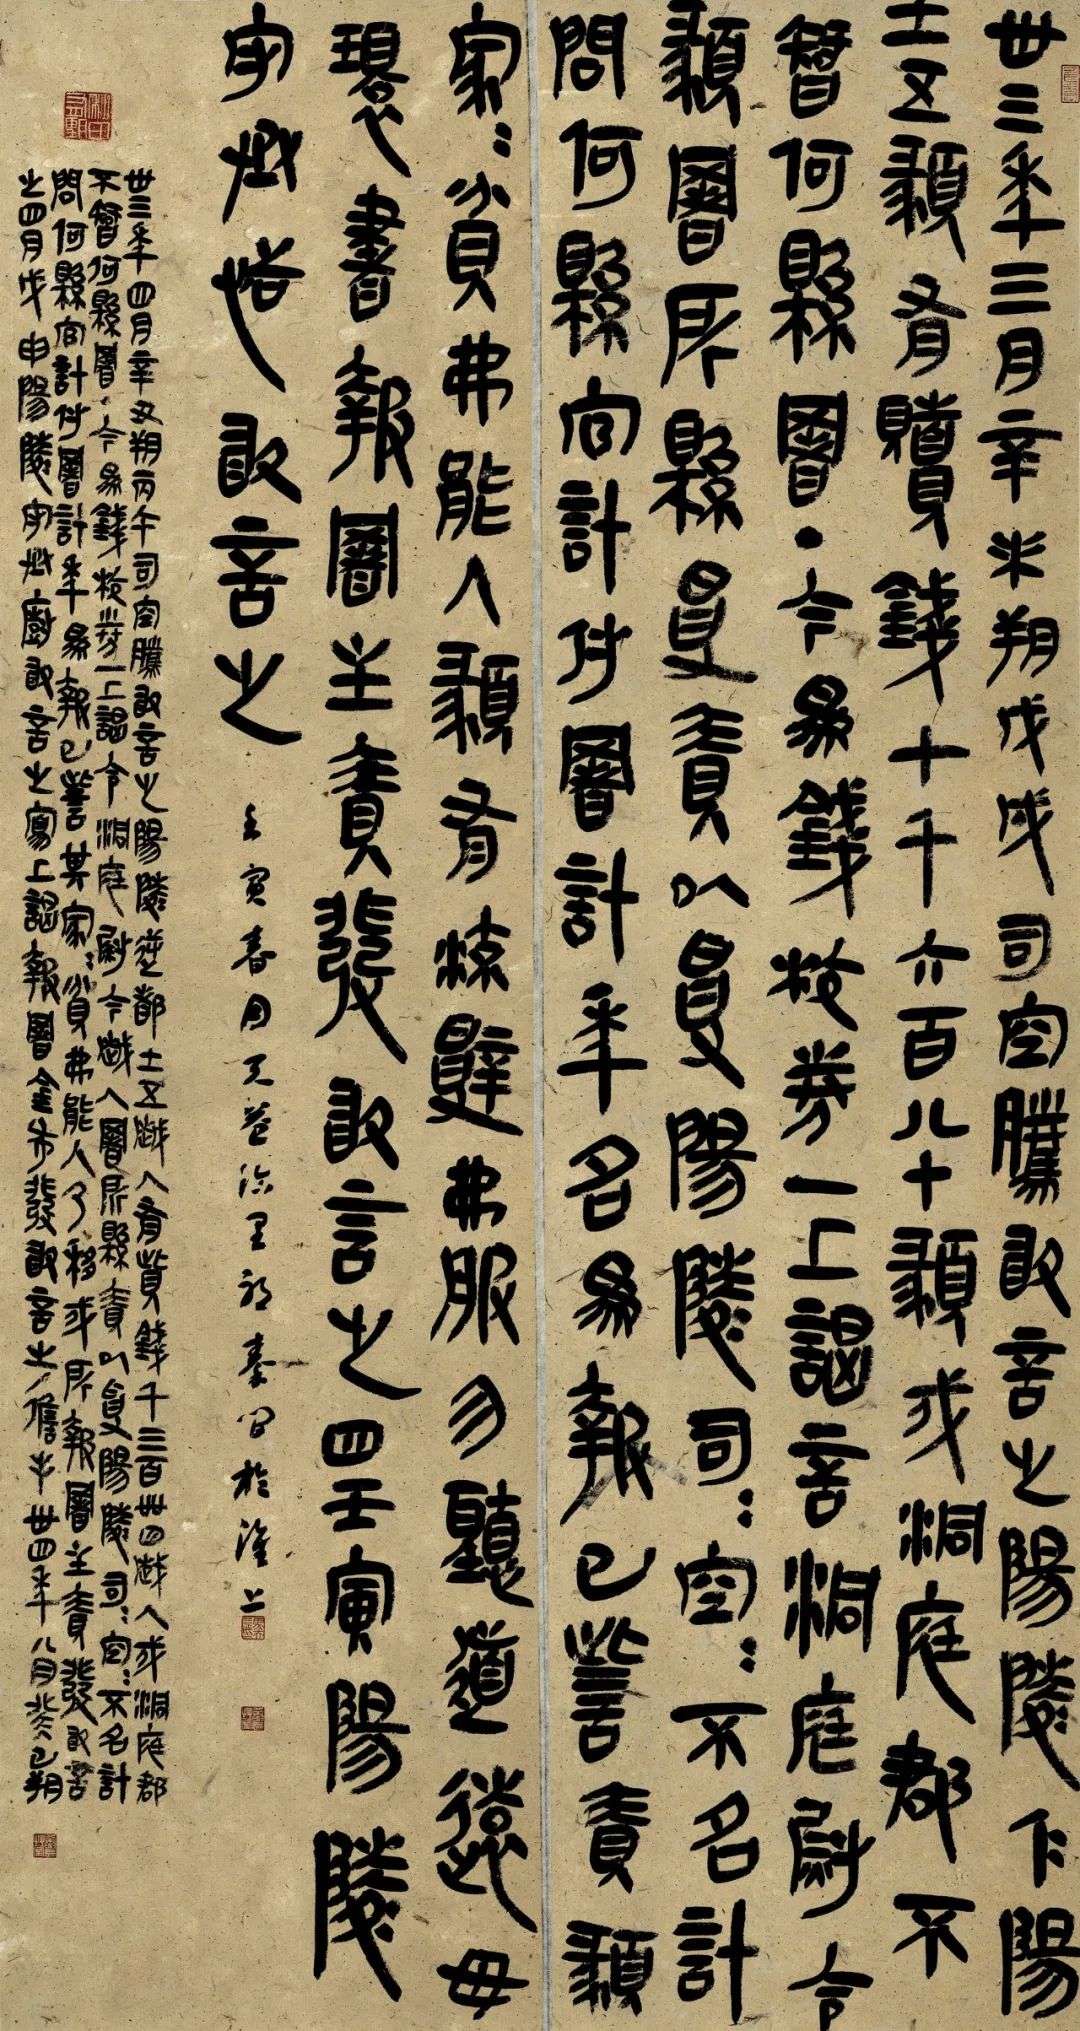 卅三年三月辛未朔戊戌司空騰敢言之陽陵仁陽
士五頯有贖錢十千六百八十頯戍洞庭郡不
智何縣署·今為錢校券一上謁言洞庭尉令
頯署所縣受責以受陽陵司=空=不名計
問何縣官計付署計年名為報已訾責頯
家=貧弗能入頯有流辟弗服勿聽道遠毋
環書報署主責發敢言之四壬寅陽陵
守丞恬敢言之
壬寅春月天益臨里耶秦簡於滬上
卅三年四月辛丑朔丙午司空騰敢言之陽陵逆都士五越人有貲錢千三百卌四越人戍洞庭郡
不智何縣署·今為錢校券一上謁令洞庭尉令越人署所縣責以受陽陵司=空=不名計
問何縣官計付署計年為報已訾其家=貧弗能入乃移戍所報署主責發敢言
之四月戊申陽陵守丞廚敢言之寫上謁報署金布發敢言之儋手卅四年八月癸巳朔